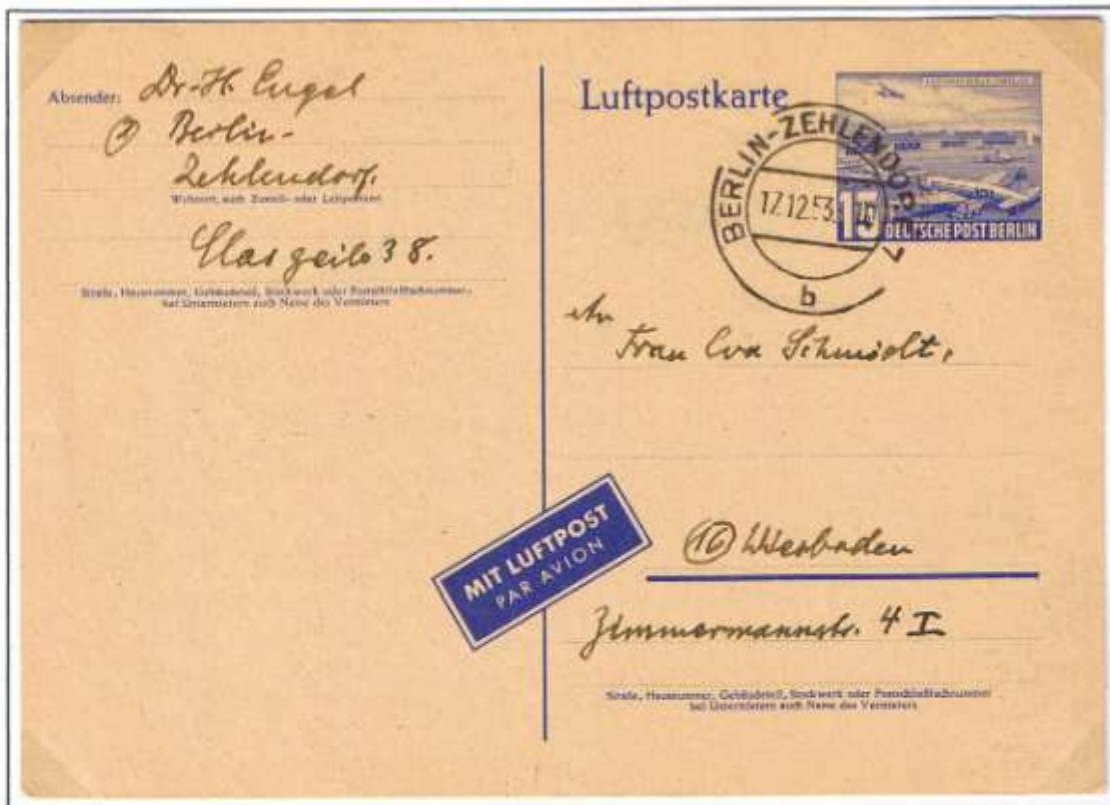 Absender: Dr. H. Engel
Berlin-
Zehlendorf.
Wohnort, auch Zustell- oder Leitpostamt
38.
Straße, Hausnummer, Gebäudeteil, Stockwerk oder Postschließfachnummer,
bei Untermietern auch Name des Vermieters
Luftpostkarte
BERLIN-ZEHLENDORF
17.12.53.
b
15 DEUTSCHE POST BERLIN
An
Frau Eva Schmidt,
MIT LUFTPOST
PAR AVION
(16) Wiesbaden
Zimmermannstr. 4 I
Straße, Hausnummer, Gebäudeteil, Stockwerk oder Postschließfachnummer
bei Untermietern auch Name des Vermieters